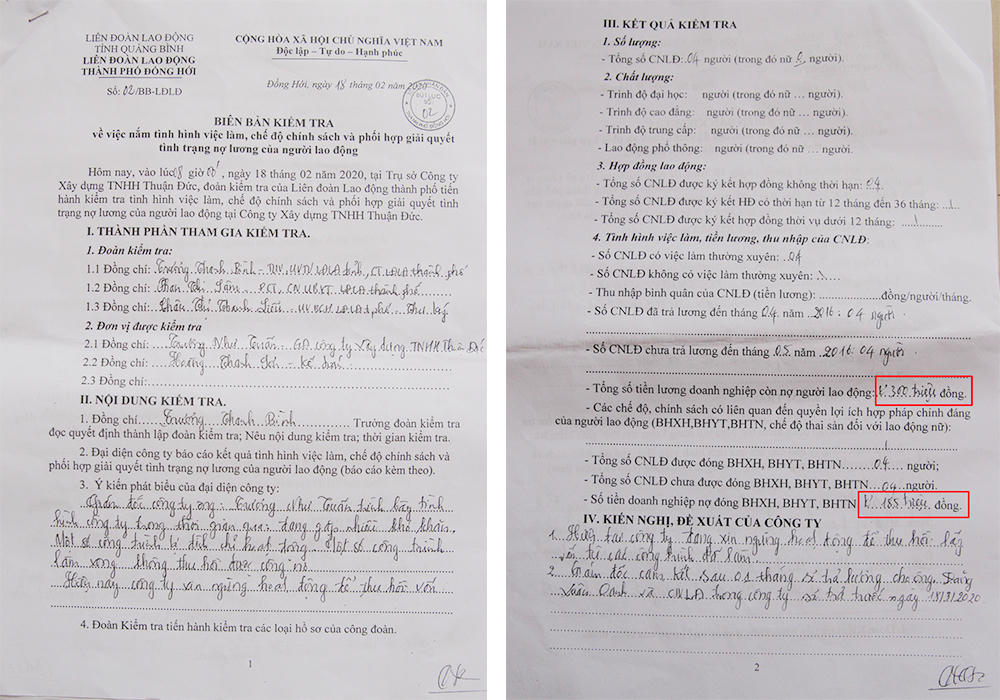 LIÊN ĐOÀN LAO ĐỘNG
TỈNH QUẢNG BÌNH
LIÊN ĐOÀN LAO ĐỘNG
THÀNH PHỐ ĐỒNG HỚI
Số: 02/BB-LĐLĐ
CỘNG HÒA XÃ HỘI CHỦ NGHĨA VIỆT NAM
Độc lập – Tự do – Hạnh phúc
Đồng Hới, ngày 18 tháng 02 năm 2020
BÚT LỤC
SỐ
02
BIÊN BẢN KIỂM TRA
về việc nắm tình hình việc làm, chế độ chính sách và phối hợp giải quyết
tình trạng nợ lương của người lao động
Hôm nay, vào lúc 08 giờ 00', ngày 18 tháng 02 năm 2020, tại Trụ sở Công ty
Xây dựng TNHH Thuận Đức, đoàn kiểm tra của Liên đoàn Lao động thành phố tiến
hành kiểm tra tình hình việc làm, chế độ chính sách và phối hợp giải quyết tình
trạng nợ lương của người lao động tại Công ty Xây dựng TNHH Thuận Đức.
I. THÀNH PHẦN THAM GIA KIỂM TRA.
1. Đoàn kiểm tra:
1.1 Đồng chí: Trương Thanh Bình - LĐLĐ tỉnh, CT LĐLĐ thành phố
1.2 Đồng chí: Phan Thị - PCT, CN UBKT LĐLĐ thành phố
1.3 Đồng chí: Thị Thanh - LĐLĐ t phố - Thư ký
2. Đơn vị được kiểm tra
2.1 Đồng chí: Trương Như Tuấn - GĐ công ty Xây dựng TNHH Thuận Đức
2.2 Đồng chí: Hoàng Thanh - Kế toán
2.3 Đồng chí:
II. NỘI DUNG KIỂM TRA.
1. Đồng chí Trương Thanh Bình Trưởng đoàn kiểm tra
đọc quyết định thành lập đoàn kiểm tra; Nêu nội dung kiểm tra; thời gian kiểm tra.
2. Đại diện công ty báo cáo kết quả tình hình việc làm, chế độ chính sách và
phối hợp giải quyết tình trạng nợ lương của người lao động (báo cáo kèm theo).
3. Ý kiến phát biểu của đại diện công ty:
Giám đốc công ty ông: Trương Như Tuấn trình bày tình
hình công ty trong thời gian qua đang gặp nhiều khó khăn,
Một số công trình bị đình chỉ hoạt động. Một số công trình
làm xong không thu hồi được công nợ.
Hiện nay công ty xin ngừng hoạt động để thu hồi vốn
4. Đoàn Kiểm tra tiến hành kiểm tra các loại hồ sơ của công đoàn.
1
III. KẾT QUẢ KIỂM TRA
1. Số lượng:
- Tổng số CNLĐ: 04 người (trong đó nữ người).
2. Chất lượng:
- Trình độ đại học: người (trong đó nữ … người).
- Trình độ cao đẳng: người (trong đó nữ … người).
- Trình độ trung cấp: người (trong đó nữ … người).
- Lao động phổ thông: người (trong đó nữ … người.
3. Hợp đồng lao động:
- Tổng số CNLĐ được ký kết hợp đồng không thời hạn: 04.
- Tổng số CNLĐ được ký kết HĐ có thời hạn từ 12 tháng đến 36 tháng: ..1..
- Tổng số CNLĐ được ký kết hợp đồng thời vụ dưới 12 tháng: ....1
4. Tình hình việc làm, tiền lương, thu nhập của CNLĐ:
- Số CNLĐ có việc làm thường xuyên: 04
- Số CNLĐ không có việc làm thường xuyên:
- Thu nhập bình quân của CNLĐ (tiền lương): ................đồng/người/tháng.
- Số CNLĐ đã trả lương đến tháng 04. năm 2016 - 04 người
- Số CNLĐ chưa trả lương đến tháng 05. năm 2016. 04 người
- Tổng số tiền lương doanh nghiệp còn nợ người lao động: 300 triệu đồng.
- Các chế độ, chính sách có liên quan đến quyền lợi ích hợp pháp chính đáng
của người lao động (BHXH,BHYT,BHTN, chế độ thai sản đối với lao động nữ):
- Tổng số CNLĐ được đóng BHXH, BHYT, BHTN 04 người;
- Tổng số CNLĐ chưa được đóng BHXH, BHYT, BHTN 04 người.
- Số tiền doanh nghiệp nợ đóng BHXH, BHYT, BHTN 185 triệu đồng.
IV. KIẾN NGHỊ, ĐỀ XUẤT CỦA CÔNG TY
1. Hiện tại công ty đang xin ngừng hoạt động để thu hồi lấy
vốn từ các công trình đã làm.
2. Giám đốc cam kết sau 01 tháng sẽ trả lương cho ông
Xuân và CNLĐ trong công ty sẽ trả trước ngày 18/3/2020
2